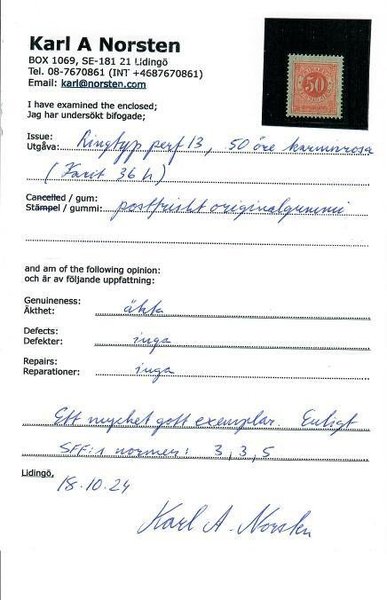 Karl A Norsten
BOX 1069, SE-181 21 Lidingö
Tel. 08-7670861 (INT +4687670861)
Email: karl@norsten.com
50
I have examined the enclosed;
Jag har undersökt bifogade;
Issue:
Utgåva: Ringtyp perf 13, 50 öre karminrosa
(Facit 36 h)
Cancelled / gum:
Stämpel / gummi: postfriskt originalgummi
and am of the following opinion:
och är av följande uppfattning:
Genuineness:
Äkthet: äkta
Defects:
Defekter: inga
Repairs:
Reparationer: inga
Ett mycket gott exemplar. Enligt
SFF:s normer: 3, 3, 5
Lidingö, 18.10.24
Karl A. Norsten